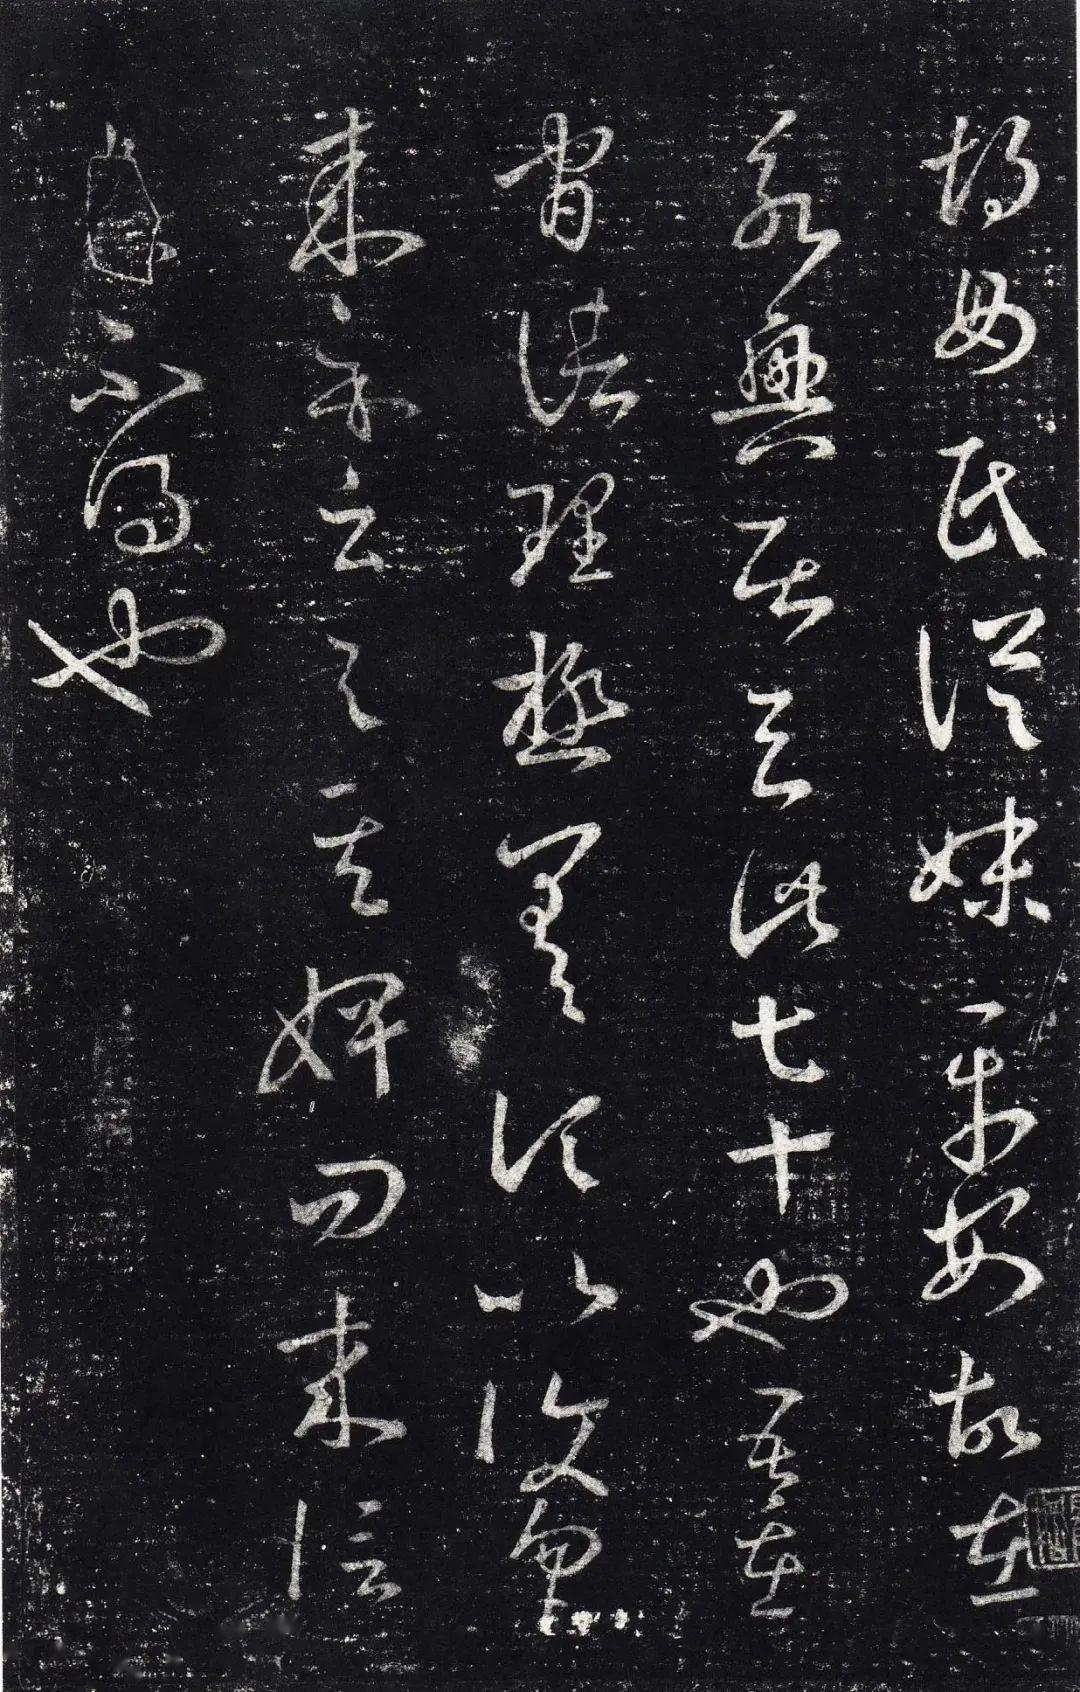 胡母氏從妹平安故在
永興居去此七十也吾在
官諸理極差頃比復勿
來示云與其婢問來信
不得也